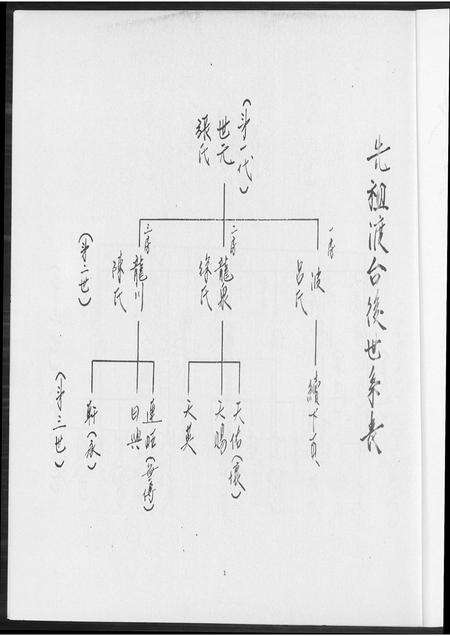 先祖渡台後世系表
(第一代)
世元
張氏
一房
波
呂氏
二房
龍泉
徐氏
三房
龍川
陳氏
(第二世)
續下頁
天佑(懷)
天賜
天英
連旺(
日興
(永)
(第三世)
1